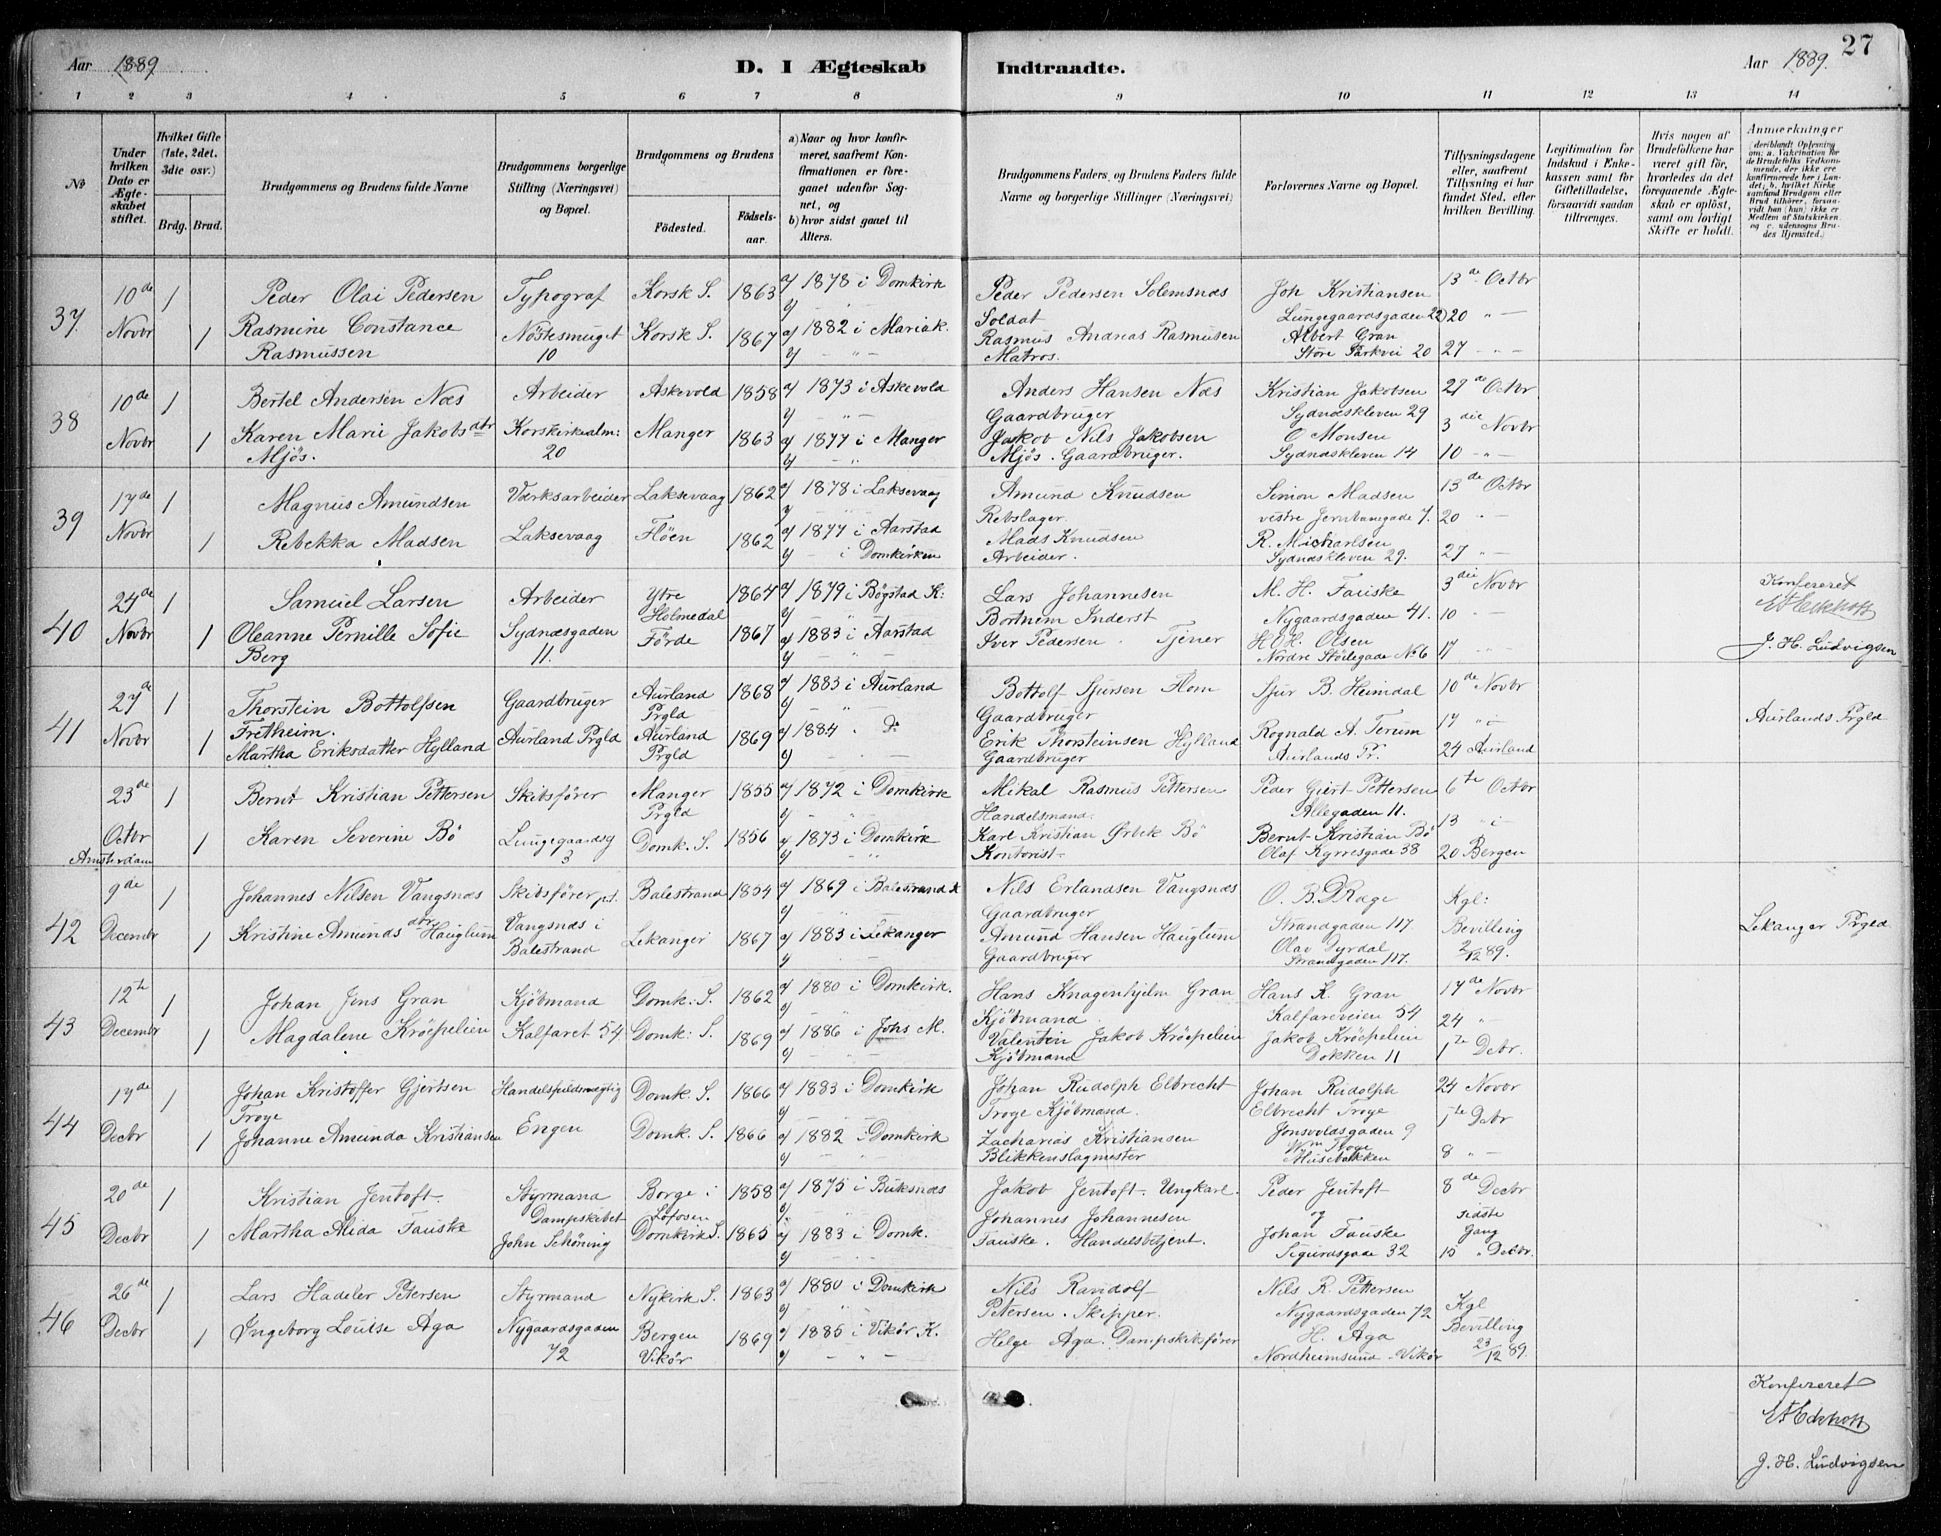 Aar 1889
D. I Ægteskab Indtraadte.
Aar 1889.
27
1 2 3 4 5 6 7 8 9 10 11 12 13 14
No
Under hvilken Dato er Ægteskabet stiftet.
Hvilket Gifte (1ste, 2det, 3die osv.)
Brdg. Brud.
Brudgommens og Brudens fulde Navne
Brudgommens borgerlige Stilling (Næringsvei) og Bopæl.
Brudgommens og Brudens
Födested.
Födselsaar.
a) Naar og hvor konfirmeret, saafremt Konfirmationen er foregaaet udenfor Sognet, og
b) hvor sidst gaaet til Alters.
Brudgommens Faders og Brudens Faders fulde Navne og borgerlige Stillinger (Næringsvei)
Forlovernes Navne og Bopæl.
Tillysningsdagene eller, saafremt Tillysning ei har fundet Sted, efter hvilken Bevilling.
Legitimation for Indskud i Enkekassen samt for Giftetilladelse, forsaavidt saadan tiltrænges.
Hvis nogen af Brudefolkene har været gift för, hvorledes da det foregaaende Ægteskab er oplöst, samt om lovligt Skifte er holdt.
Anmærkninger (deriblandt Oplysning om: a. Vakcination for de Brudefolks Vedkommende, der ikke ere konfirmerede her i Landet; b. hvilket Kirkesamfund Brudgom eller Brud tilhörer, forsaavidt han (hun) ikke er Medlem af Statskirken og c. udensogns Brudes Hjemsted.)
37 10de Novbr 1 1
Peder Olai Pedersen
Rasmine Constance
Rasmussen
Typograf
Nöstesmuget
10
Korsk S. 1863 a/ 1878 i Domkirk
Korsk S. 1867 a/ 1882 i Mariak.
Peder Pedersen Solemsnæs
Soldat
Rasmus Andreas Rasmusen
Matros.
Joh Kristiansen
Lungegaardsgaden 22
Albert Gran
Store Parkvei 20
13de Octbr
20 " —
27 — " —
38 10de Novbr 1 1
Bertel Andersen Næs
Karen Marie Jakobsdtr
Mjös.
Arbeider
Korskirkealm:
20
Askevold 1858 a/ 1873 i Askevold
Manger 1863 a/ 1877 i Manger
Anders Hansen Næs
Gaardbruger
Jakob Nils Jakobsen
Mjös. Gaardbruger.
Kristian Jakobsen
Sydnæskleven 29
O Monsen
Sydnæskleven 14
27de Octbr
3die Novbr
10 — " —
39 17de Novbr 1 1
Magnus Amundsen
Rebekka Madsen
Værksarbeider
Laksevaag
Laksevaag 1862 a/ 1878 i Laksevaag
Flöen 1862 a/ 1877 i Aarstad
y — i Domkirken
Amund Knudsen
Rebslager.
Mads Knudsen
Arbeider.
Simon Madsen
vestre Jernbanegade 7.
R. Michaelsen
Sydnæskleven 29.
13de Octbr
20 " —
27 " —
40 24de Novbr 1 1
Samuel Larsen
Oleanne Pernille Sofie
Berg
Arbeider
Sydnæsgaden
11.
Ytre Holmedal 1864 a/ 1879 i Bögstad K:
Förde 1867 a/ 1883 i Aarstad
Lars Johannesen
Bortnem Inderst
Iver Pedersen. Tjener
M. H. Fauske
Nygaardsgaden 41.
H. Olsen
Nordre Stölegade No 6
3die Novbr
10 — " —
17 " —
Konfereret
J. H. Ludvigsen
41 27de Novbr 1 1
Thorstein Bottolfsen
Fretheim.
Martha Eriksdatter Hylland
Gaardbruger
Aurland Prgld
Aurland Prgld 1868 a/ 1883 i Aurland
Aurland Prgld 1869 a/ 1884 . Do
Bottolf Sjursen Flom
Gaardbruger
Erik Thorsteinsen Hylland
Gaardbruger
Sjur B. Heimdal
Rognald A. Terum
Aurlands Pr.
10de Novbr
17 " —
24 Aurland
Aurlands Prgld
23de Octbr Amsterdam 1 1
Bernt Kristian Pettersen
Karen Severine Bö
Skibsförer
Lungegaardsg
3
Manger Prgld 1855 a/ 1872 i Domkirk
Domk. S. 1856 a/ 1873 i Domkirk
Mikal Rasmus Pettersen
Handelsmand.
Karl Kristian Ørbek Bö
Kontorist
Peder Giert Pettersen
Allegaden 11.
Bernt Kristian Bö
Olaf Kyrresgade 38
6te Octbr
13 " —
20 Bergen
42 9de Decembr 1 1
Johannes Nilsen Vangsnæs
Kristine Amundsdtr Hauglum
Skibsförer
Vangsnæs i
Balestrand
Balestrand 1854 a/ 1869 i Balestrand
Lekanger 1867 a/ 1883 i Lekanger
Nils Erlandsen Vangsnæs
Gaardbruger
Amund Hansen Hauglum
Gaardbruger
O. B. Drage
Strandgaden 117.
Olav Dyrdal
Strandgaden 117.
Kgl:
Bevilling
2/12 89.
Lekanger Prgld
43 12te Decembr 1 1
Johan Jens Gran
Magdalene Kröepelien
Kjöbmand
Kalfaret 54
Domk: S. 1862 a/ 1880 i Domkirk.
Domk: S. 1869 a/ 1886 i Johs M.
Hans Knagenhjelm Gran
Kjöbmand.
Valentin Jakob Kröepelien
Kjöbmand
Hans K. Gran
Kalfareveien 54
Jakob Kröepelien
Dokken 11
17de Novbr
24 "
1te Debr.
44 17de Decbr 1 1
Johan Kristoffer Gjertsen
Troye
Johanne Amunda Kristiansen
Handelsfuldmægtig
Engen
Domk. S. 1866 a/ 1883 i Domkirk
Domk. S. 1866 a/ 1882 i Domkirk
Johan Rudolph Elbrecht
Troye Kjöbmand.
Zacharias Kristiansen
Blikkenslagmester
Johan Rudolph
Elbrecht Troye
Jonsvoldsgaden 9
Wm Troye
Husebakken
24 Novbr
1te Debr
8 " —
45 20de Decbr 1 1
Kristian Jentoft
Martha Alida Fauske
Styrmand
Dampskibet
John Schöning
Borge i Lofoten 1858 a/ 1875 i Buksnæs
Domkirk S. 1865 a/ 1883 i Domk.
Jakob Jentoft - Ungkarl.
Johannes Johannesen
Fauske. Handelsbetjent.
Peder Jentoft
og
Johan Fauske
Sigurdsgade 32
8de Decbr
sidste
Gang
15 " Debr.
46 26de Decbr 1 1
Lars Hadeler Petersen
Ingeborg Louise Aga
Styrmand
Nygaardsgaden
72
Nykirk S. 1863 a/ 1880 i Domkirk
Bergen Vikör 1869 a/ 1885 i Vikör K.
Nils Randolf
Petersen. Skipper.
Helge Aga. Dampskibsförer
Nils R. Pettersen
Nygaardsgaden 72
H. Aga
Nordheimsund - Vikör
Kgl
Bevilling
23/12 89.
Konfereret
J. H. Ludvigsen